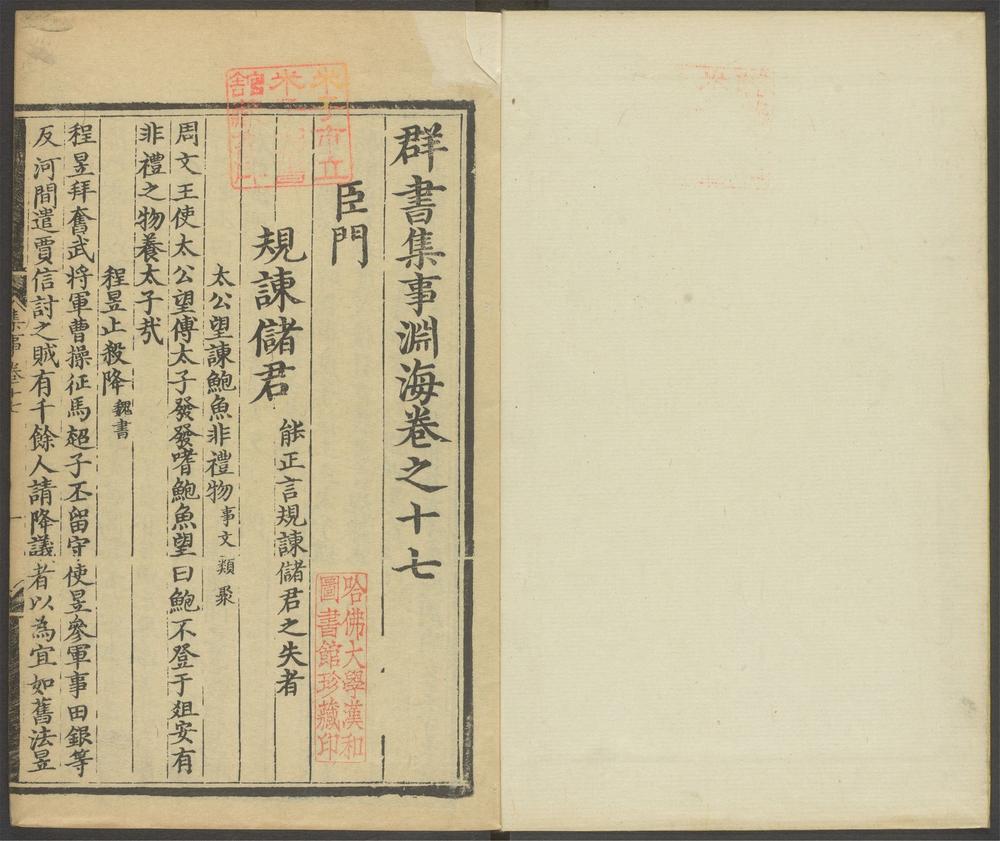 群書集事淵海卷之十七
臣門
規諫儲君 能正言規諫儲君之失者
太公望諫鮑魚非禮物 事文類聚
周文王使太公望傅太子發發嗜鮑魚望曰鮑不登于爼安有
非禮之物養太子㦲
程昱止殺降 魏書
程昱拜奮武将軍曹操征馬超子丕留守使昱參軍事田銀等
反河間遣賈信討之賊有千餘人請降議者以為宜如舊法昱
集事卷十七
一
米子市立
米子圖書
館藏書印
哈佛大學漢和
圖書館珍藏印